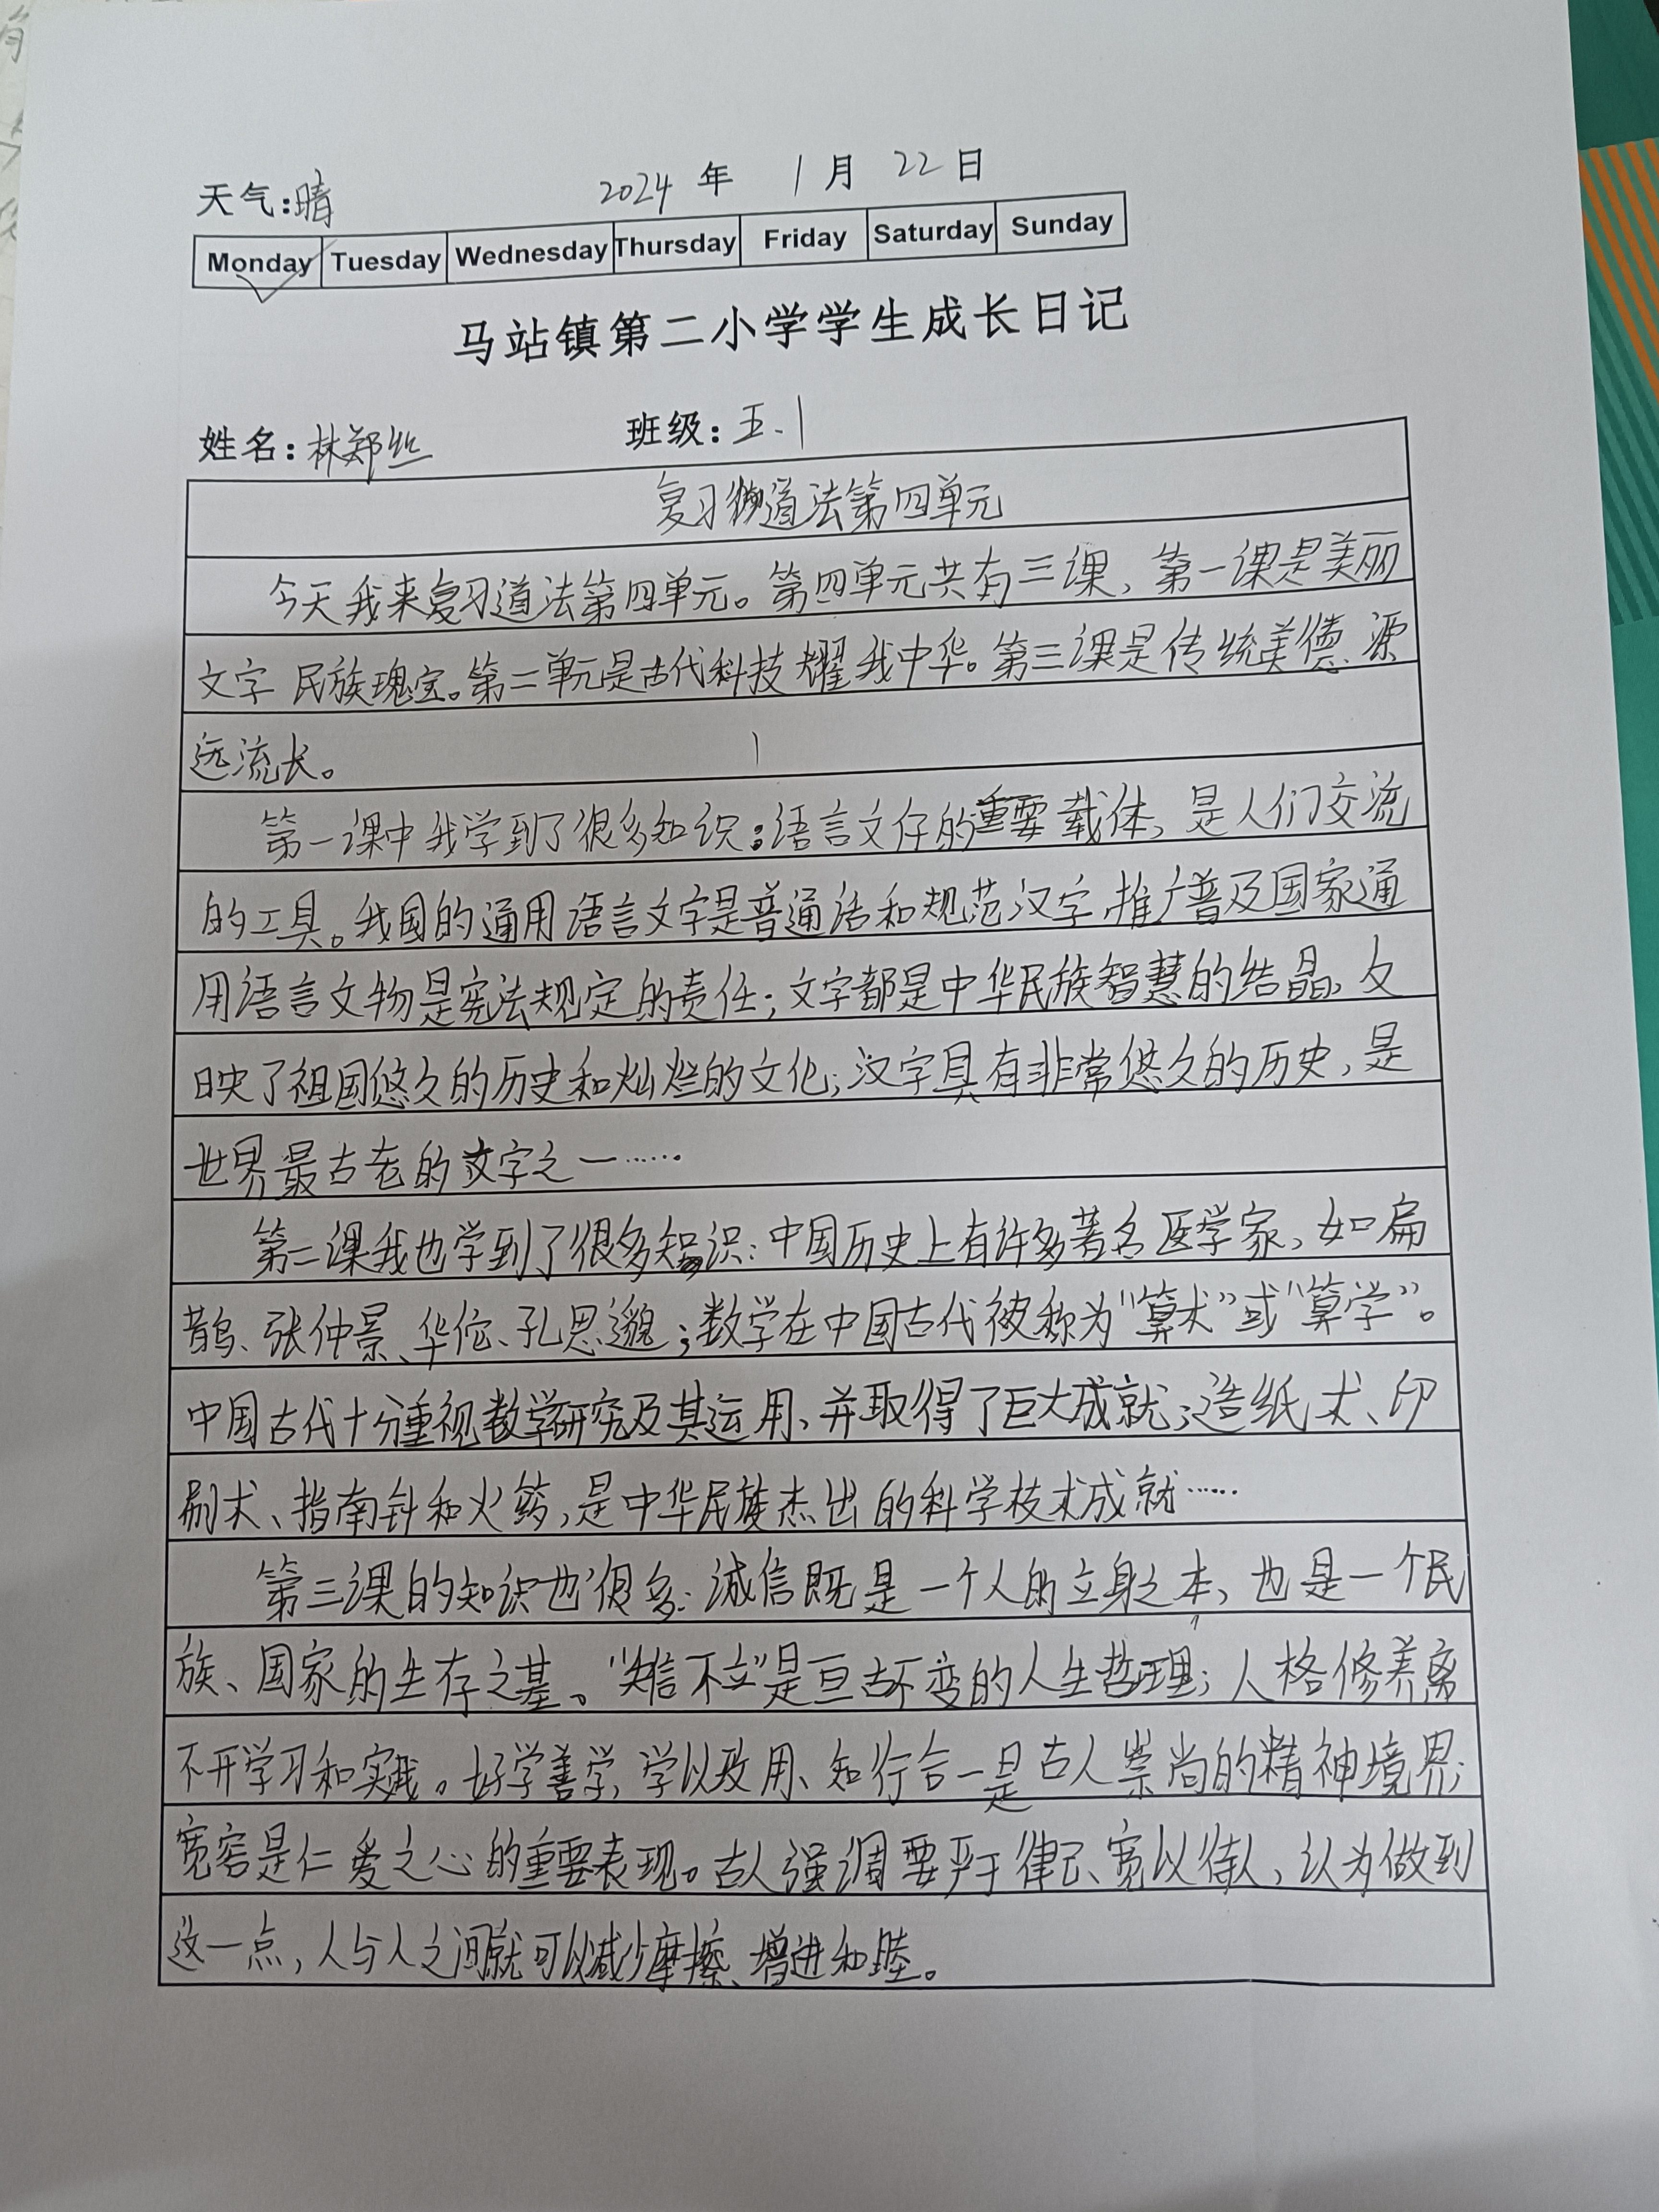 天气:晴 2024 年 1 月 22 日
Monday Tuesday Wednesday Thursday Friday Saturday Sunday
马站镇第二小学学生成长日记
姓名:林郑丝 班级:五.1
复习道法第四单元
今天我来复习道法第四单元。第四单元共有三课、第一课是美丽
文字 民族瑰宝。第二单元是古代科技 耀我中华。第三课是传统美德 源
远流长。
第一课中我学到了很多知识:语言文仔的重要载体,是人们交流
的工具。我国的通用语言文字是普通话和规范汉字,推广普及国家通
用语言文物是宪法规定的责任;文字都是中华民族智慧的结晶、反
映了祖国悠久的历史和灿烂的文化;汉字具有非常悠久的历史,是
世界最古老的文字之一……
第二课我也学到了很多知识:中国历史上有许多著名医学家、如扁
鹊、张仲景、华佗、孔思邈;数学在中国古代被称为“算术”或“算学”。
中国古代十分重视数学研究及其运用、并取得了巨大成就;造纸术、印
刷术、指南针和火药,是中华民族杰出的科学技术成就……
第三课的知识也很多:诚信既是一个人的立身之本、也是一个民
族、国家的生存之基。“失信不立”是亘古不变的人生哲理;人格修养离
不开学习和实践。好学善学,学以致用、知行合一是古人崇尚的精神境界;
宽容是仁爱之心的重要表现。古人强调要严于律己、宽以待人,认为做到
这一点,人与人之间就可以减少摩擦、增进和睦。